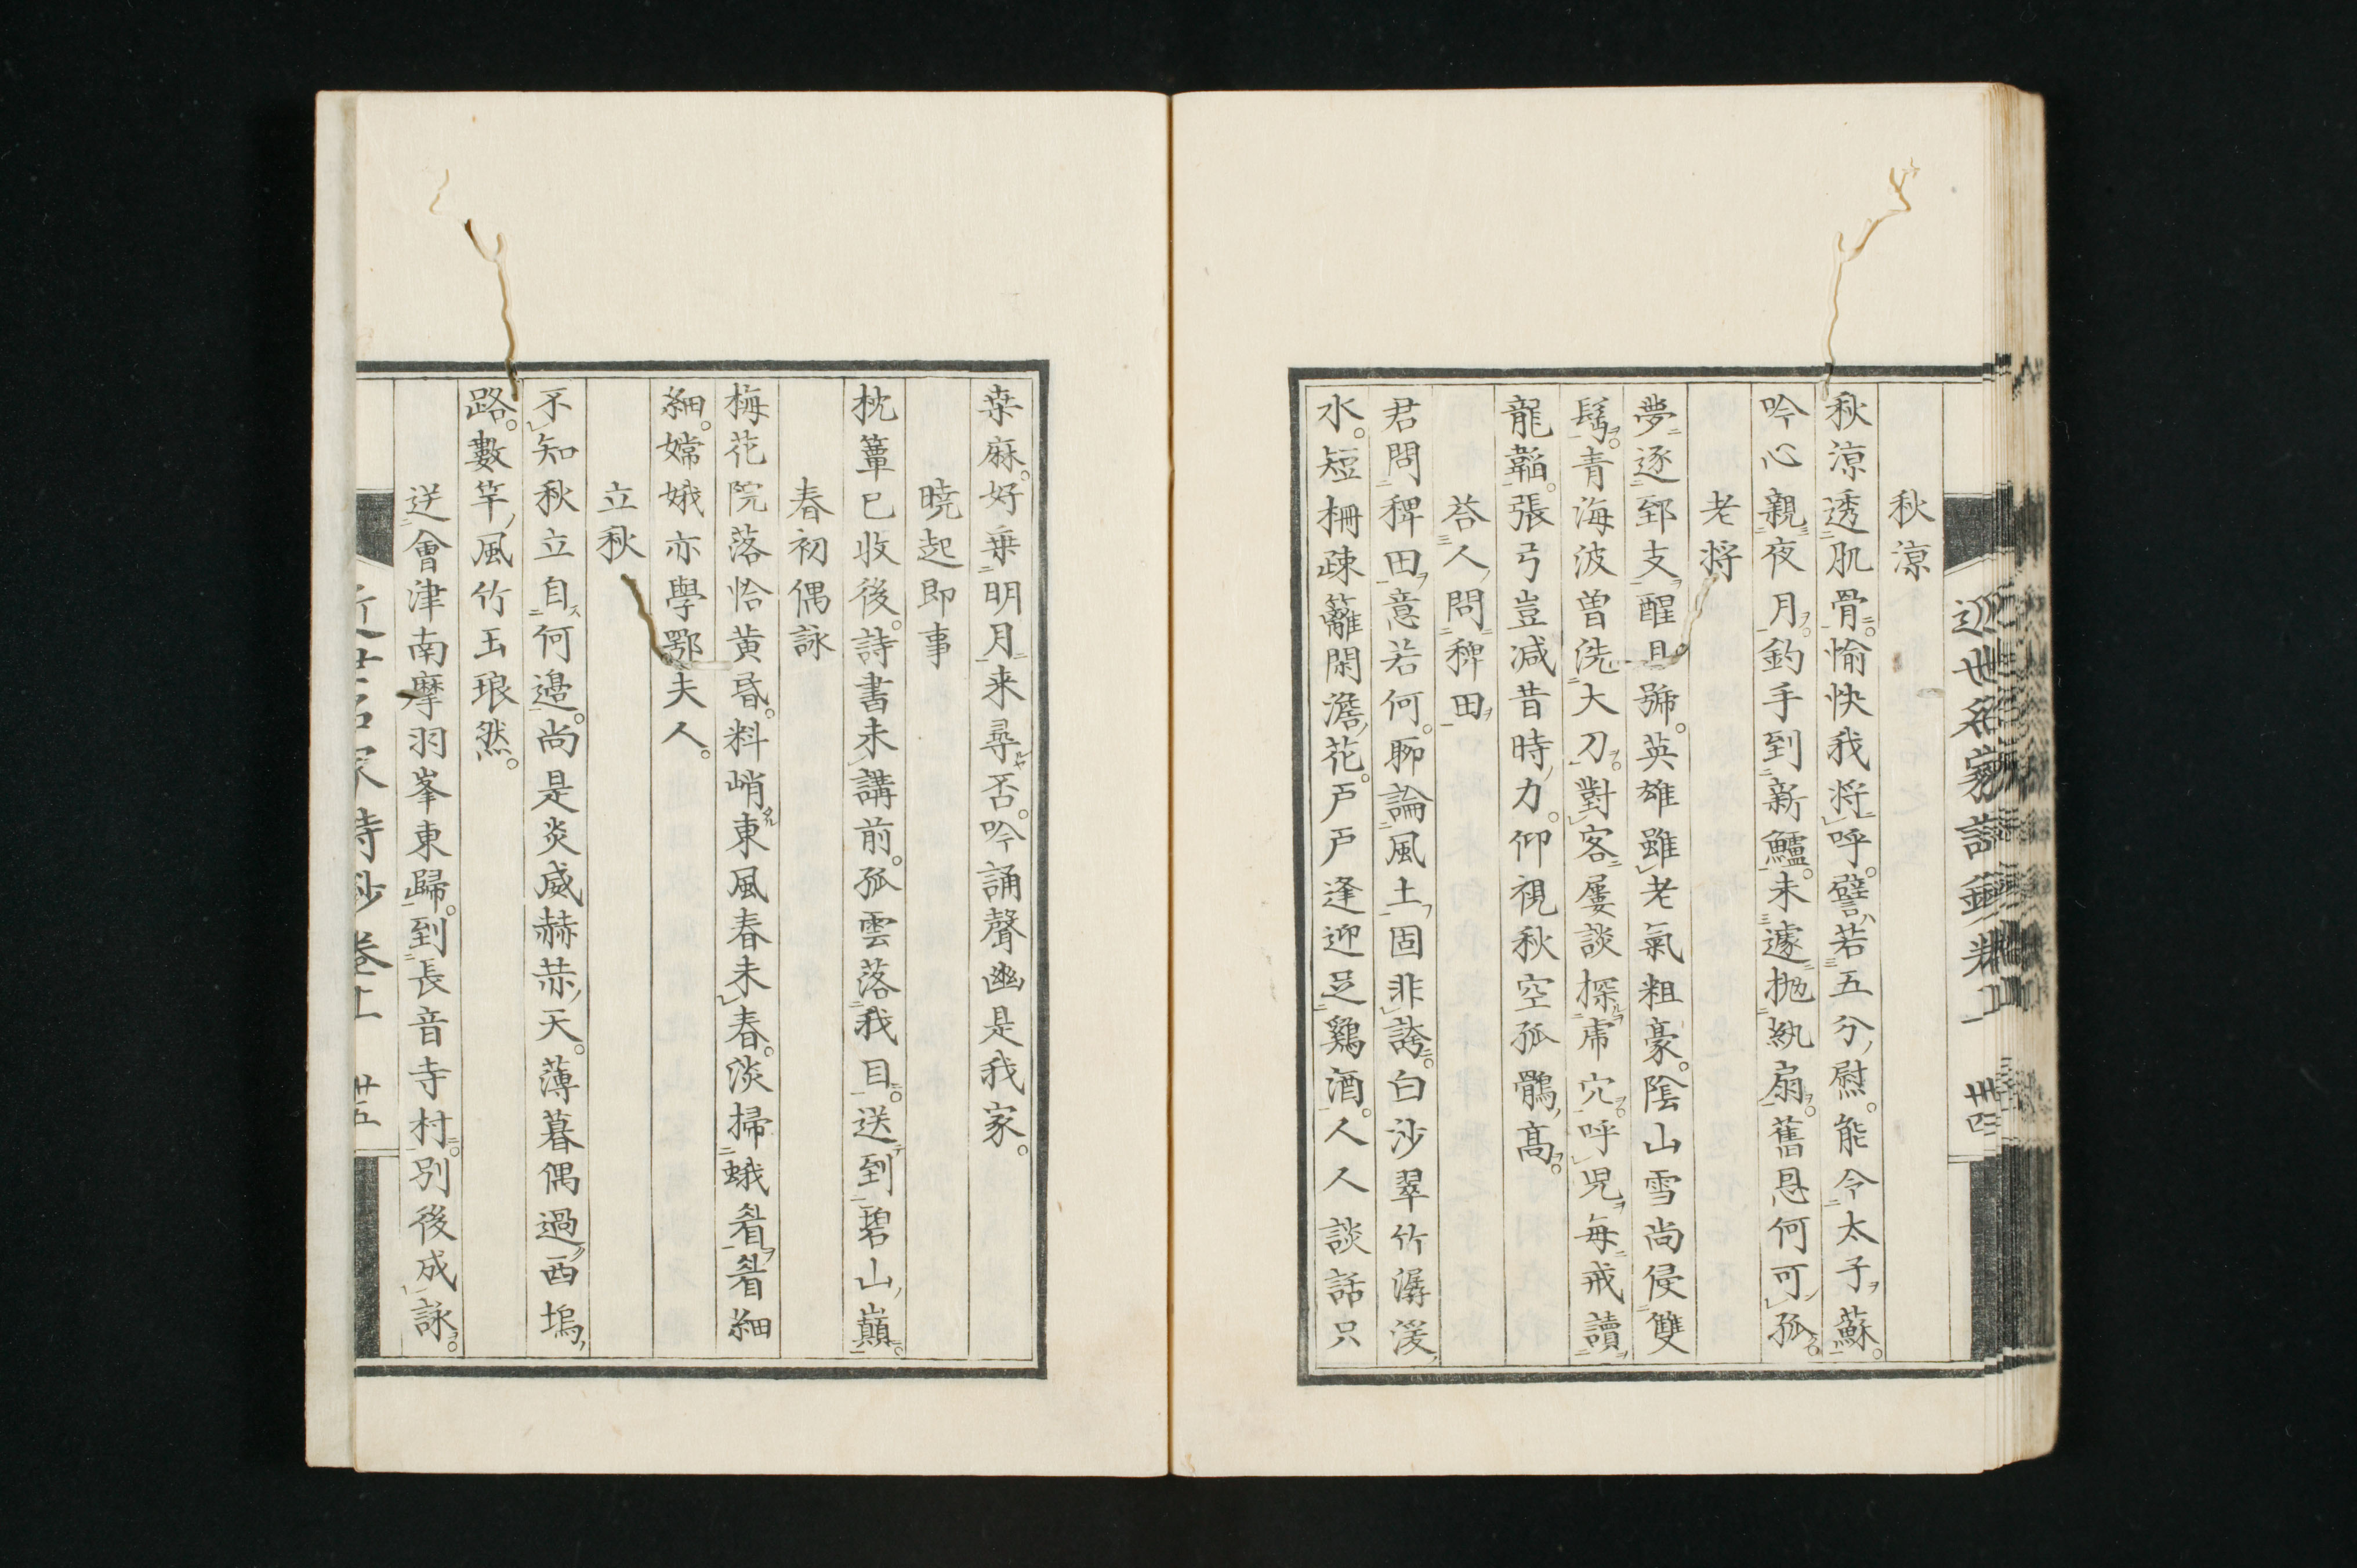 近世名家詩鈔卷上 卅四
秋涼
秋涼透肌骨。愉快我將呼。譬若五分慰。能令太子蘇。
吟心親夜月。釣手到新鱸。未遽抛紈扇。舊恩何可孤。
老將
夢逐郅支醒旦號。英雄雖老氣粗豪。陰山雪尚侵雙
髩。青海波曽洗大刀。對客屢談探虎穴。呼児每戒讀
龍韜。張弓豈减昔時力。仰視秋空孤鶻高。
荅人問稗田
君問稗田意若何。聊論風土固非誇。白沙翠竹潺湲
水。短柵疎籬閑澹花。戸戸逢迎足鷄酒。人人談話只
桒麻。好乗明月来尋否。吟誦聲幽是我家。
曉起即事
枕簟已收後。詩書未講前。孤雲落我目。送到碧山巔。
春初偶詠
梅花院落恰黄昏。料峭東風春未春。淡掃蛾眉眉細
細。嫦娥亦學鄂夫人。
立秋
不知秋立自何邉。尚是炎威赫赫天。薄暮偶過西塢
路。數竿風竹玉琅然。
送會津南摩羽峯東歸。到長音寺村。別後成詠。
近世名家詩鈔卷上 卅五